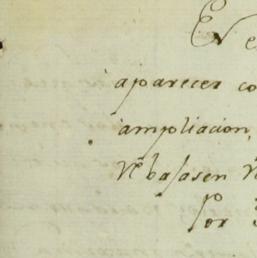 En e
aparecer co
ampliacion,
bajasen
Por